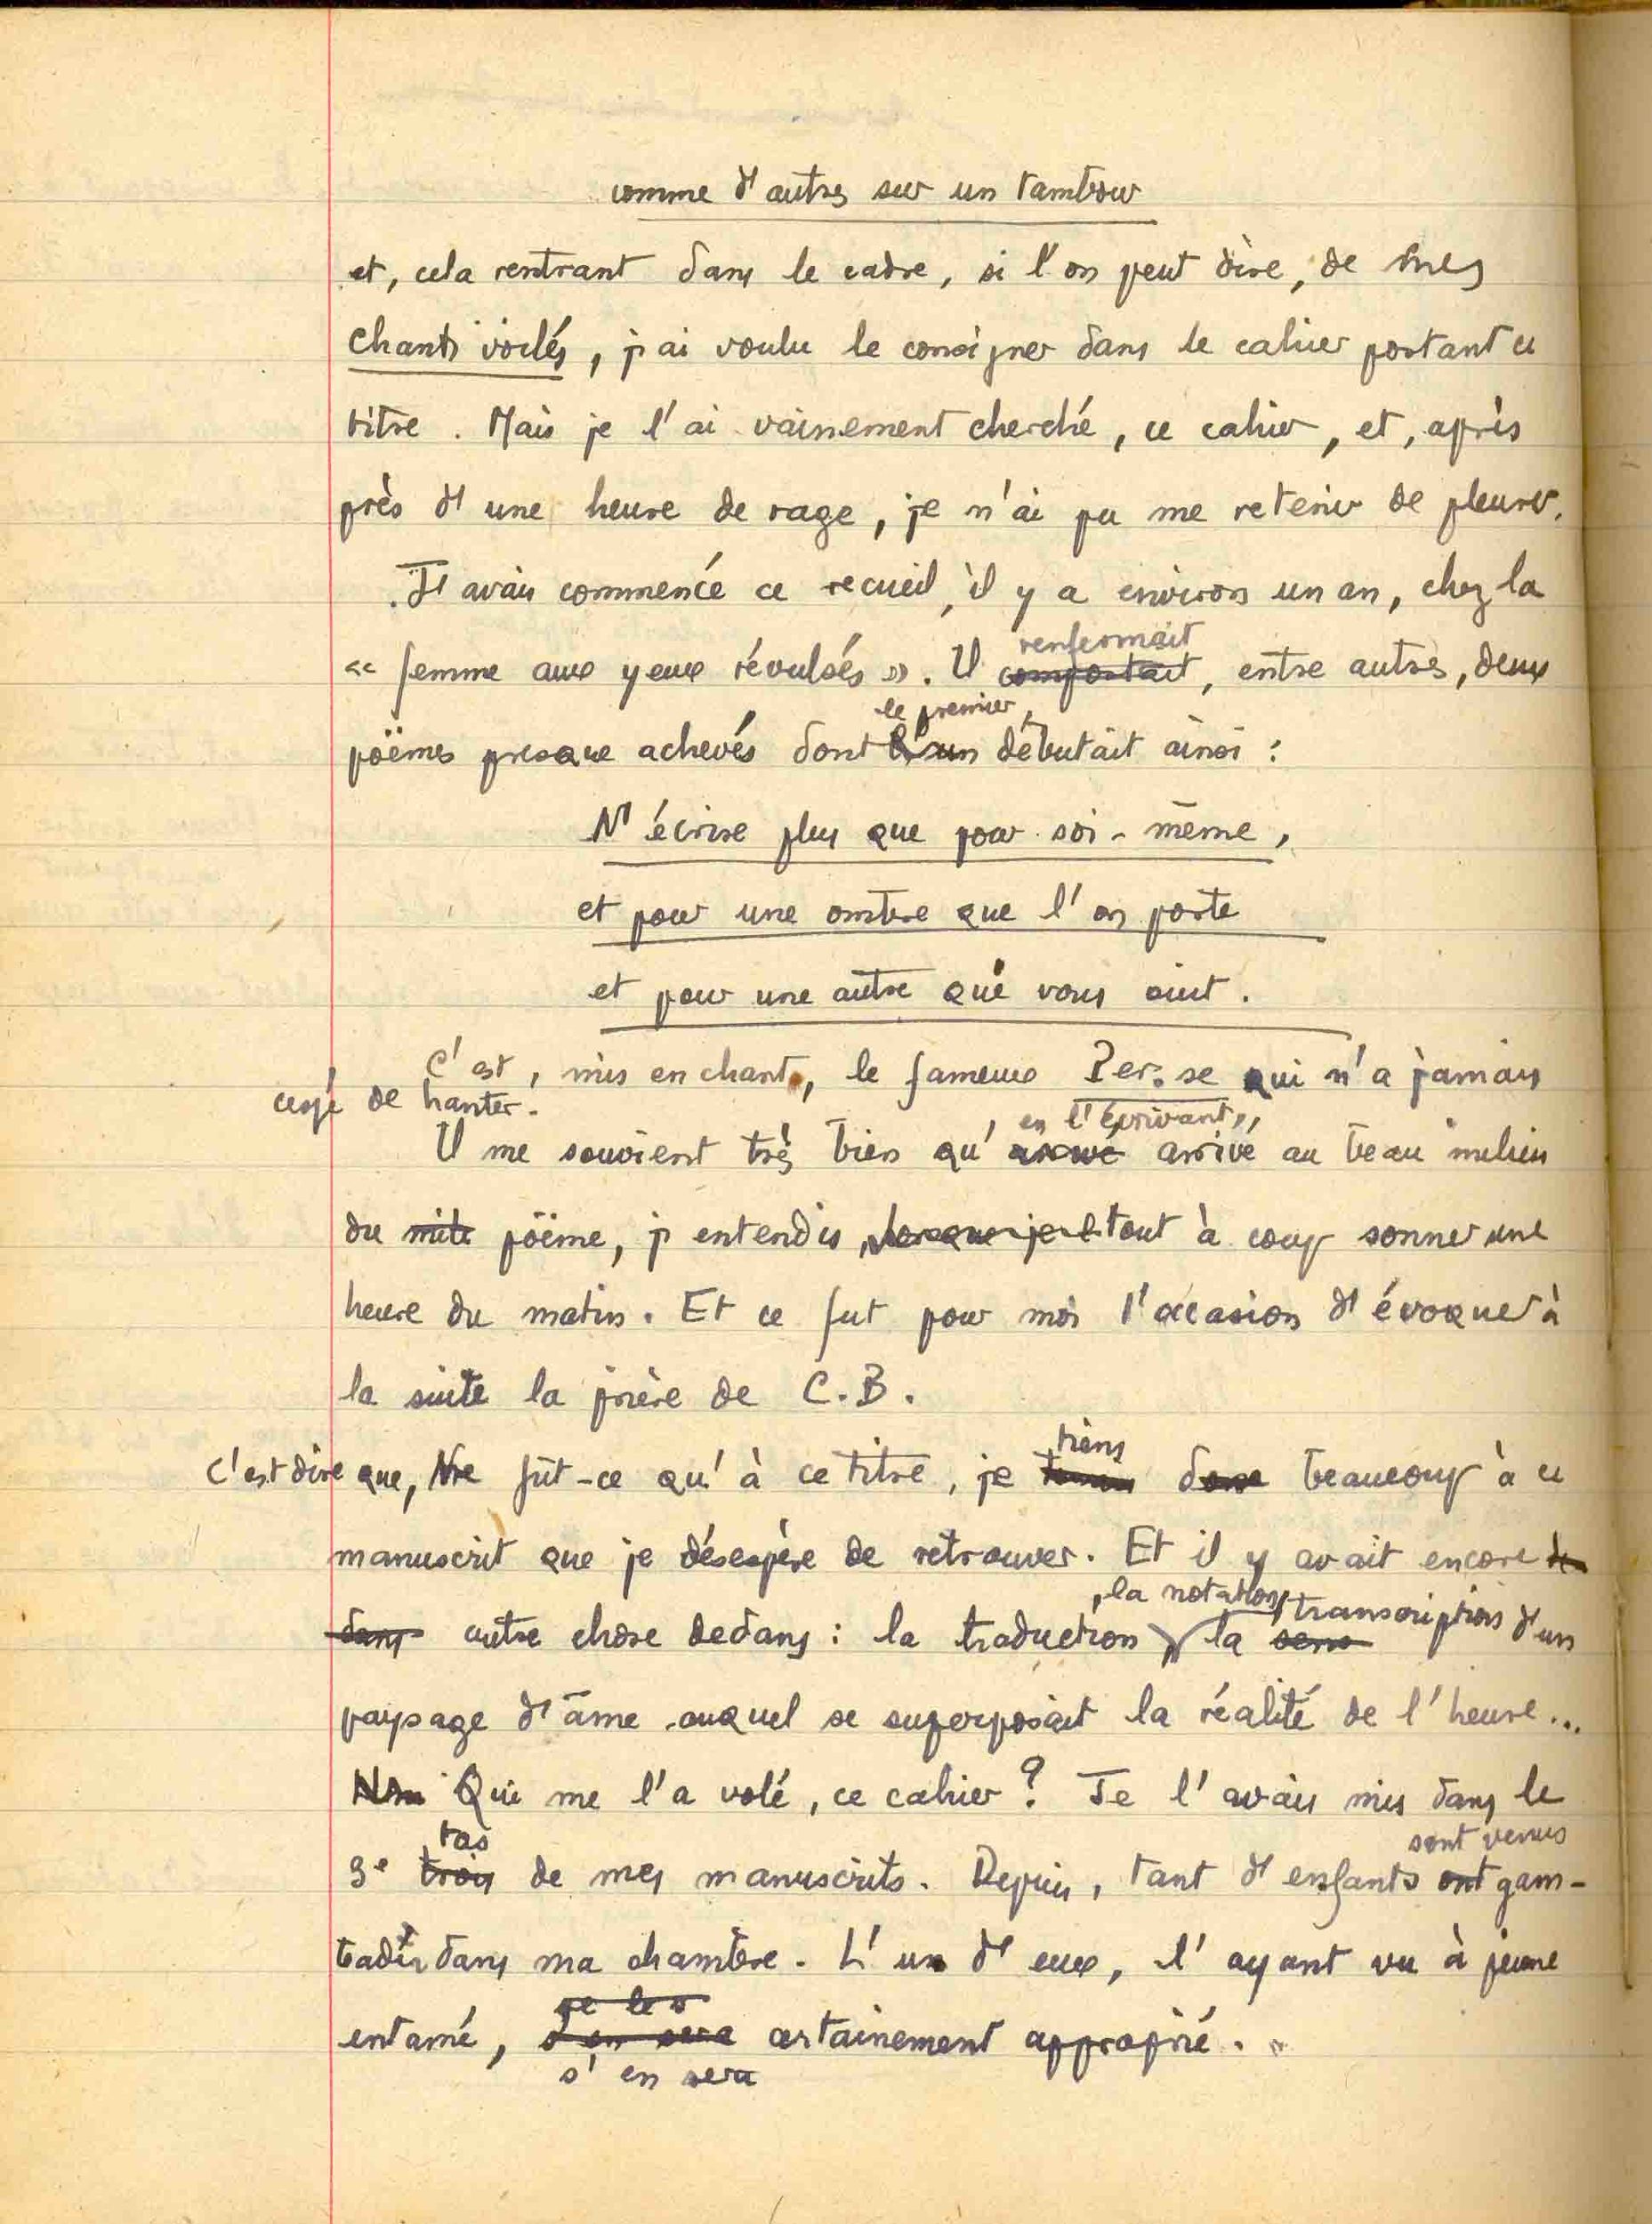 comme d'autres sur un tambour
et, cela rentrant dans le cadre, si l'on peut dire, de mes
chants voilés, j'ai voulu le consigner dans le cahier portant ce
titre. Mais je l'ai vainement cherché, ce cahier, et, après
près d'une heure de rage, je n'ai pu me retenir de pleurer.
J'avais commencé ce recueil, il y a environ un an, chez la
renfermait
« femme aux yeux révulsés ». Il comportait, entre autres, deux
le premier,
poëmes presque achevés dont l'un débutait ainsi :
N'écrire plus que pour soi-même,
et pour une ombre que l'on porte
et pour une autre qui vous suit.
C'est, mis en chant, le fameux Per. se qui n'a jamais
cessé de hanter.
en l'écrivant,
Il me souvient très bien qu'arrivé arrivé au beau milieu
du mili poëme, j'entendis, lorsque je tout à coup sonner une
heure du matin. Et ce fut pour moi l'occasion d'évoquer à
la suite la prière de C. B.
tiens
C'est dire que, Ne fût-ce qu'à ce titre, je donc beaucoup à ce
manuscrit que je désespère de retrouver. Et il y avait encore
, la notation, transcription d'un
dans autre chose dedans : la traduction, la
paysage d'âme auquel se superposait la réalité de l'heure...
Qui me l'a volé, ce cahier ? Je l'avais mis dans le
tas sont venus
3e trois de mes manuscrits. Depuis, tant d'enfants ont gam-
bader dans ma chambre. L'un d'eux, l'ayant vu à peine
se les
entamé, s'en sera certainement approprié.
s'en sera